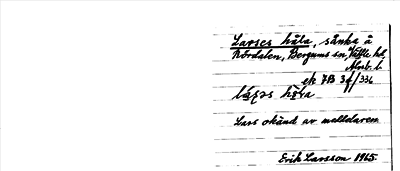 Larses håla, sänka å
Nordalen, Bergums sn, Vättle hd,
Älvsb. l
ek 7B 3f/334
Lars okänd av meddelaren
Erik Larsson 1965.